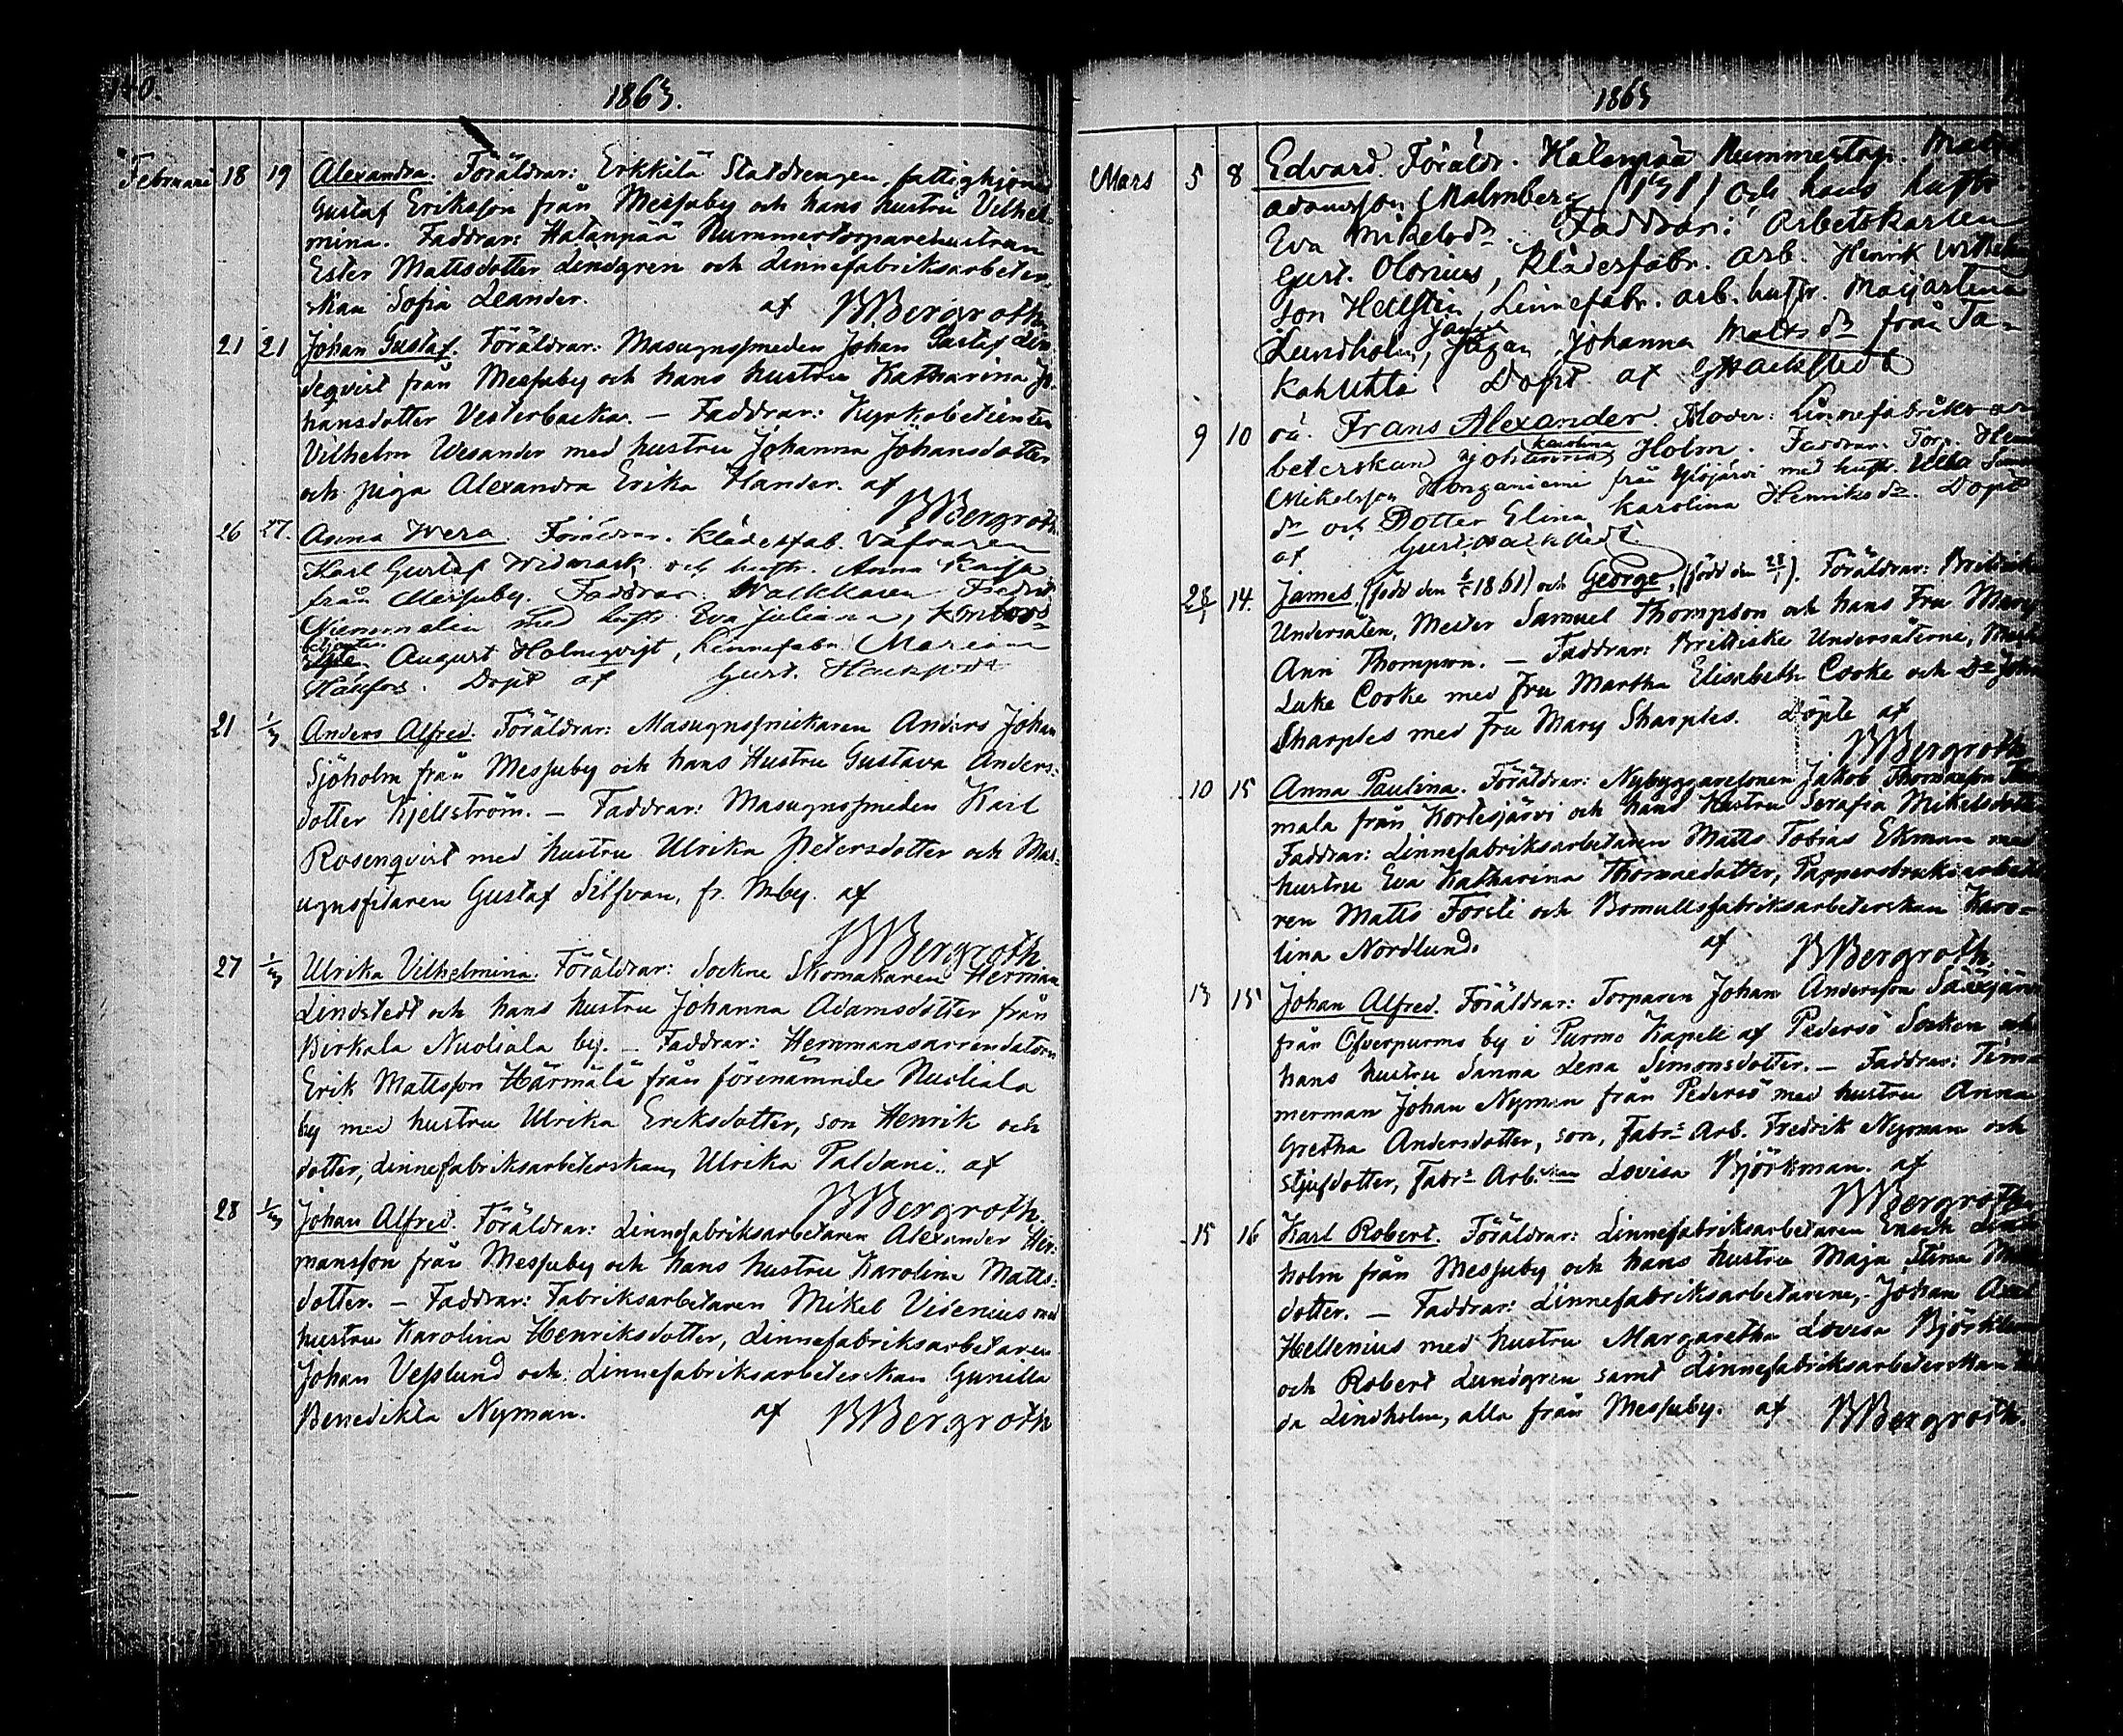 140.
1863.
Februari 18 19 Alexandra. Föräldrar: Erkkilä Statdrengen, fattighjonet
Gustaf Eriksson från Messuby och hans hustru Vilhel-
mina. Faddrar: Hatanpää Nummertorparehustrun
Ester Mattsdotter Lindgren och Linnefabriksarbeter-
skan Sofia Leander. af BBergroth
21 21 Johan Gustaf. Föräldrar: Masugnssmeden Johan Gustaf Lin-
deqvist från Messuby och hans hustru Katharina Jo-
hansdotter Vesterbacka. — Faddrar: Kyrkobetienten
Vilhelm Wesander med hustru Johanna Johansdotter
och piga Alexandra Erika Flander. af
BBergroth
26 27. Anna Wera. Föräldrar. Klädesfab. Väfvaren
Karl Gustaf Widmark och hustr. Anna Kaisa
från Messuby. Faddrar: Walkkaren Fredrik
med hustr. Eva Juliana, Kontors-
betjenten August Holmqvist, Linnefabr. Maria
Döpt af Gust. Hackstedt
21 1/3 Anders Alfred. Föräldrar: Masugnssnickaren Anders Johan
Sjöholm från Messuby och hans Hustru Gustava Anders-
dotter Kjellström. — Faddrar: Masugnssmeden Karl
Rosenqvist med hustru Ulrika Petersdotter och Mas-
ugnsfilaren Gustaf Silfvan, fr. Mby. af
BBergroth
27 1/3 Ulrika Vilhelmina. Föräldrar: Sockne Skomakaren Herman
Lindstedt och hans hustru Johanna Adamsdotter från
Birkala Nuoliala by. — Faddrar: Hemmansarrendatorn
Erik Mattsson Härmälä från förenämnde Nuoliala
by med hustru Ulrika Eriksdotter, son Henrik och
dotter, Linnefabriksarbeterskan, Ulrika Paldani. af
BBergroth
28 1/3 Johan Alfred. Föräldrar: Linnefabriksarbetaren Alexander Her-
mansson från Messuby och hans hustru Karolina Matts-
dotter. — Faddrar: Fabriksarbetaren Mikel Videnius med
hustru Karolina Henriksdotter, Linnefabriksarbetaren
Johan Vesslund och Linnefabriksarbeterskan Gunilla
Benedikta Nyman. af BBergroth
1863
Mars 5 8 Edvard. Föräldr. Hatanpää Nummertorp.
Adamsson (Malmberg) och hans hustr.
Eva Mikelsdr. Faddrar: Arbetskarlen
Gust. Olonius, Klädesfabr. arb. Henrik Wilhelms
son Hellsten Linnefabr. arb. hustr. Majastina
Lundholm, Pigan Johanna Mattsdr från Ta-
kahuhta. Döpt af GHackstedt
9 10 oä. Frans Alexander. Moder: Linnefabriks ar
beterskan Johanna Karolina Holm. Faddrar. Torp.
Mikelsson från Ylöjärvi med hustr. Ulla
dr och Dotter Elina Karolina Henriksdr. Döpt
af Gust. Hackstedt
28/1 14. James, (född den 1861) och George, (född den 28/1). Föräldrar: Brittiske
Undersåten, Mester Samuel Thompson och hans Fru Mary
Ann Thompson. — Faddrar: Brittiske Undersåterne,
Luke Cooke med Fru Martha Elisabeth Cooke och Do John
Sharples med Fru Mary Sharples. Döpte af
BBergroth
10 15 Anna Paulina. Föräldrar: Nybyggaresonen Jakob Thomasson
mala från Kortesjärvi och hans Hustru Serafia Mikelsdotter
Faddrar: Linnefabriksarbetaren Matts Tobias Ekman med
hustru Eva Katharina Thomaedotter, Pappersbruksarbeta
ren Matts Forsti och Bomullsfabriksarbeterskan Karo-
lina Nordlund. af BBergroth
13 15 Johan Alfred. Föräldrar: Torparen Johan Andersson Sääxjärvi
från Öfverpurmo by i Purmo Kapell af Pedersö Socken och
hans hustru Sanna Lena Simonsdotter. — Faddrar: Tim-
merman Johan Nyman från Pedersö med hustru Anna
Gretha Andersdotter, son, Fabrs Arb. Fredrik Nyman och
stjufdotter, Fabrs Arb.skan Lovisa Björkman. af
BBergroth
15 16 Karl Robert. Föräldrar: Linnefabriksarbetaren Enoch Lind
holm från Messuby och hans hustru Maja Stina
dotter. — Faddrar: Linnefabriksarbetarene, Johan Axel
Hellenius med hustru Margaretha Lovisa Björklund
och Robert Lundgren samt Linnefabriksarbeterskan
da Lindholm, alla från Messuby. af BBergroth.